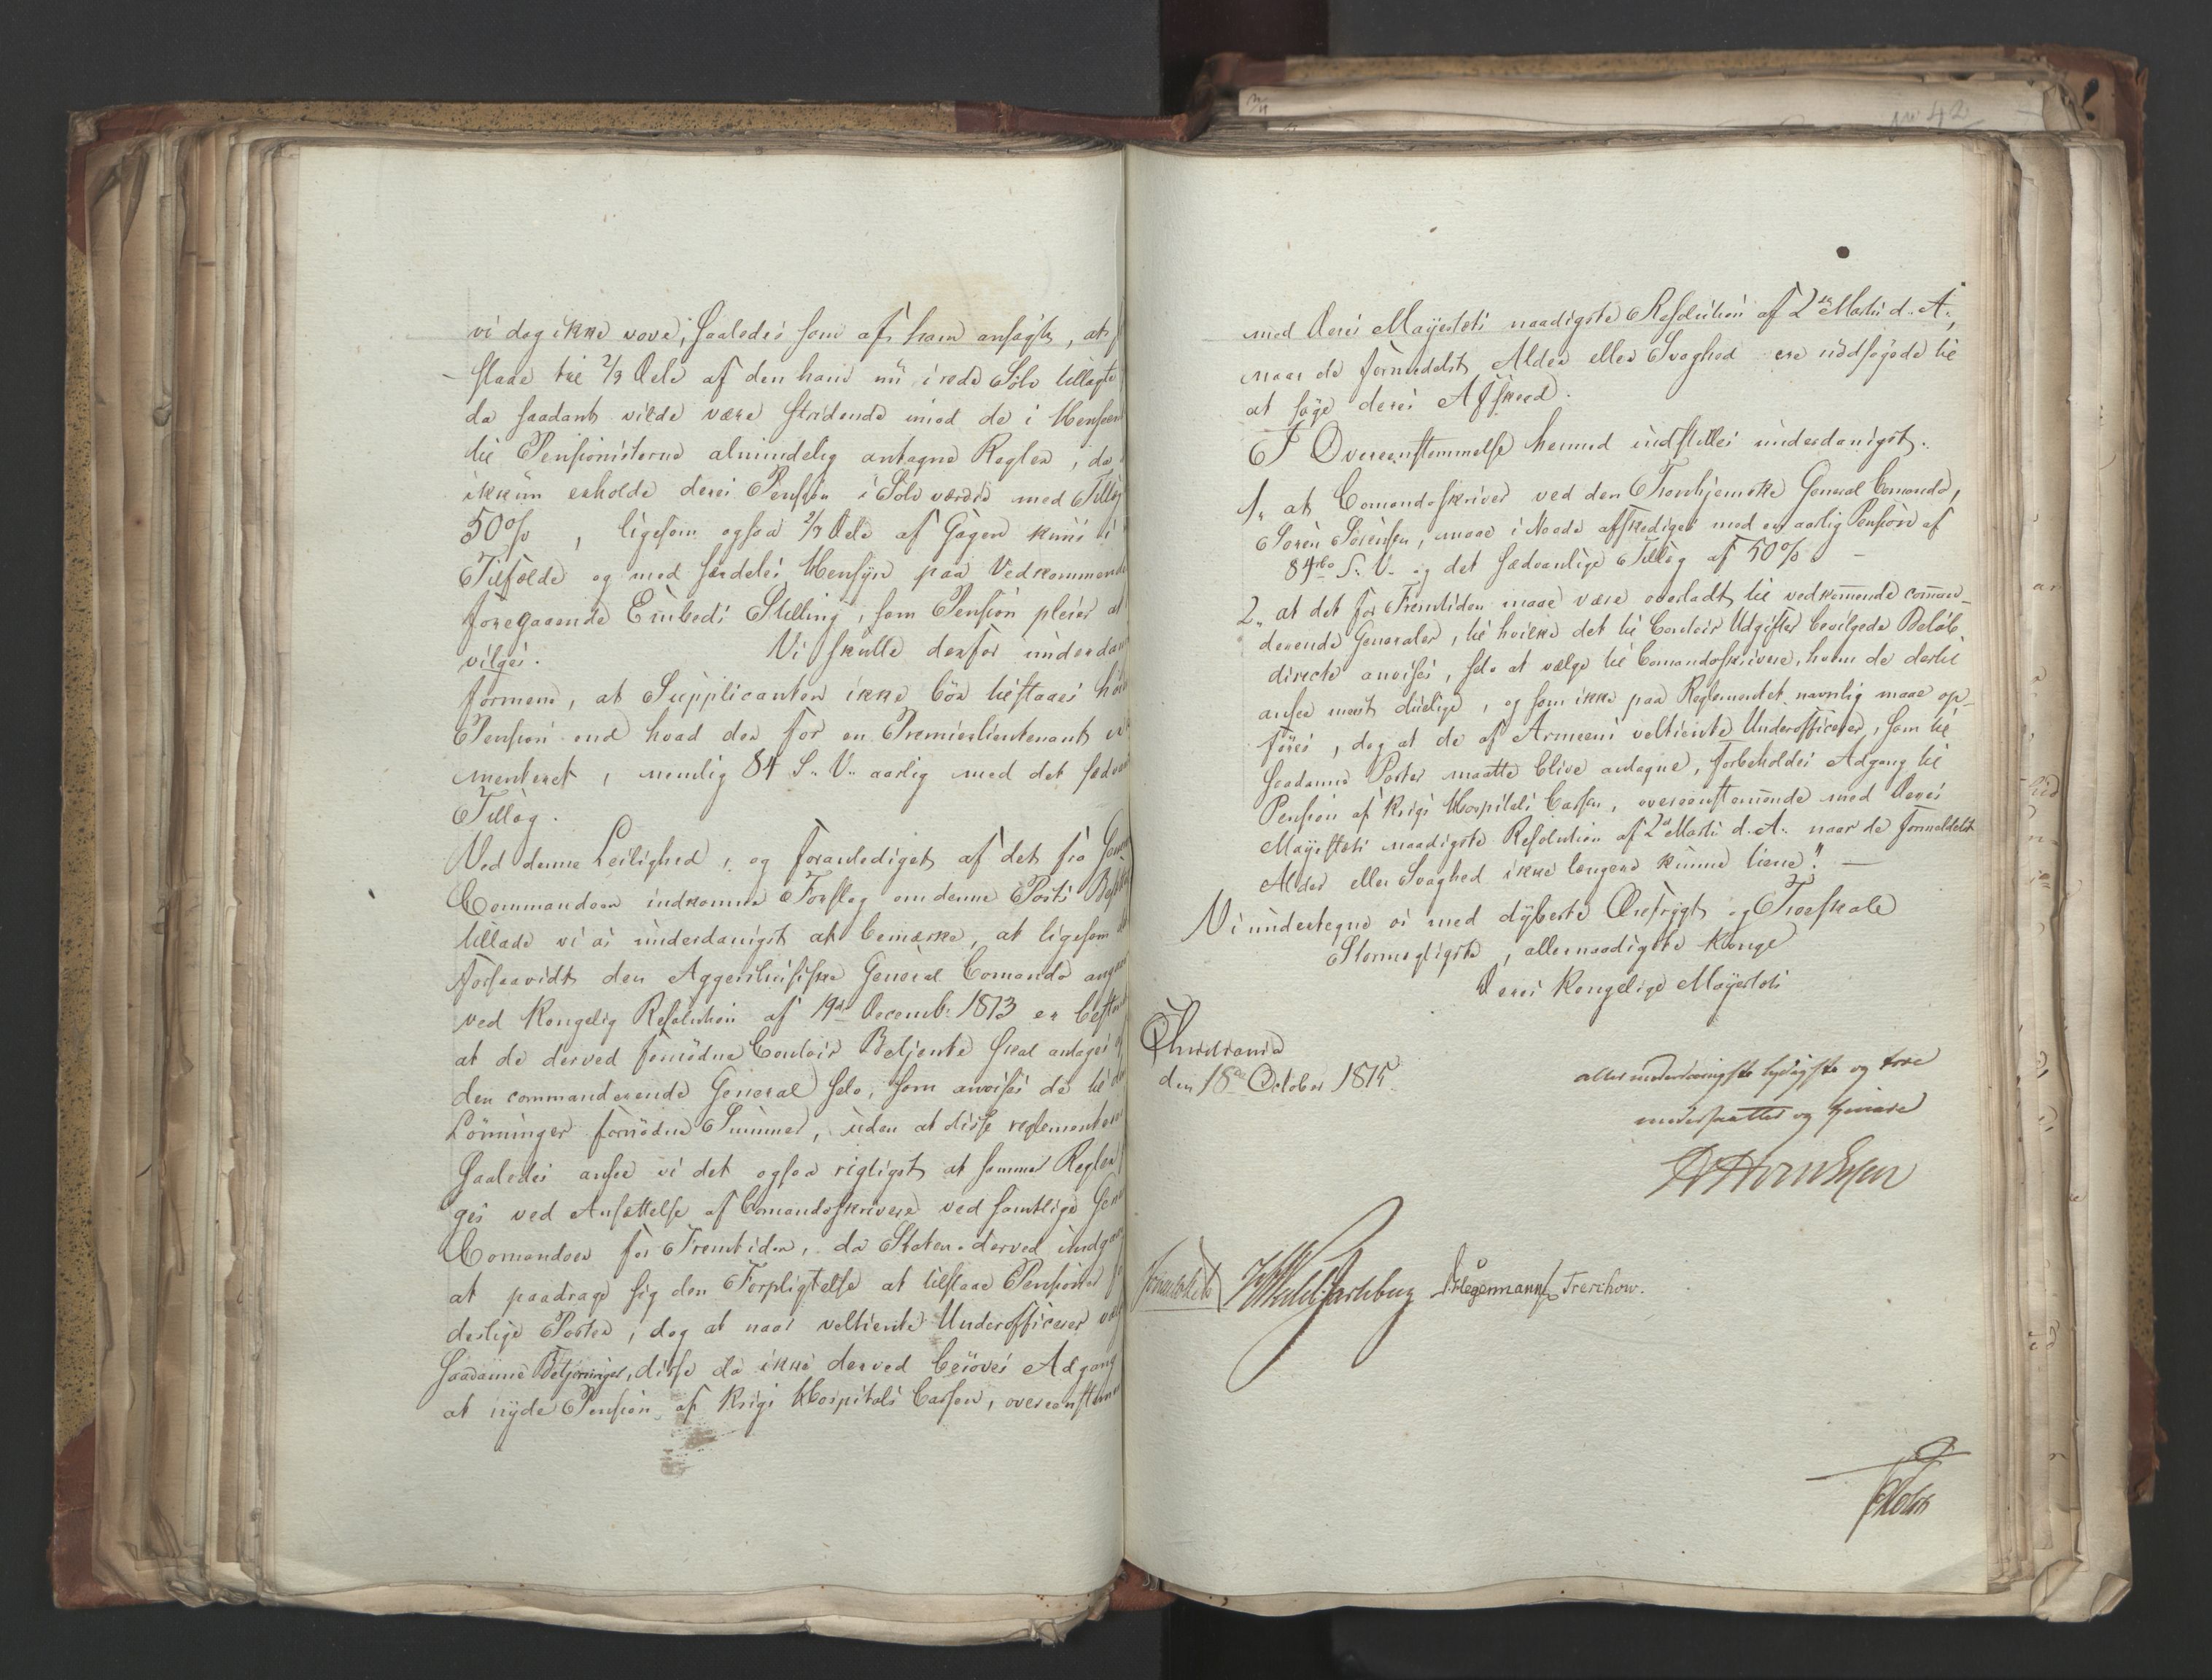 vi dog ikke vove, saaledes som af ham ansøgt, at
staae til 2/3 Dele af den ham nu i rede Sølv tillagte
da saadant vilde være stridende imod de i Henseende
til Pensionisterne almindelig antagne Regler, da
ikkun erholde deres Pension i Sølvværdie med Tillæg
50% , ligesom ogsaa 2/3 Dele af Gagen kuns i
Tilfælde og med særdeles Hensyn paa Vedkommende
foregaaende Embeds Stilling, som Pension pleier at
vilges. Vi skulle derfor underdan
formene, at Supplicanten ikke bør tilstaaes høi
Pension end hvad der for en Premierlieutenant er
menteret, nemlig 84 S. V. aarlig med det sædvan
Tillæg.
Ved denne Leilighed, og foranlediget af det fra General
Commandoen indkomne Forslag om denne Posts
tillade vi os underdanigst at bemærke, at ligesom
forsaavidt den Aggershuusiske General Comando
ved Kongelig Resolution af 19de Decemb: 1813 er
at de derved fornødne Contoir Betjente skal antages
den commanderende General selv, som anvises de til
Lønninger fornødne Summer, uden at disse reglementere
saaledes ansee vi det ogsaa rigtigst at samme Regler
ges ved Ansættelse af Comandoskrivere ved samtlige Gene
Comandoer for Fremtiden, da Staten derved undgaaer
at paadrage sig den Forpligtelse at tilstaae Pensioner
deslige Poster, dog at naar veltiente Underofficerer
saadanne Betjeninger, disse da ikke derved berøves Adgang
at nyde Pension af Krigs Hospitals Cassen, overeenstemm
No 42
med Deres Mayestets naadigste Resolution af 2den Martii d. A.,
naar de formedelst Alder eller Svaghed ere nødsagede til
at søge deres Afskeed.
I Overeenstemmelse hermed indstilles underdanigst:
1, at Comandoskriver ved den Tronhjemske General Comando,
Søren Sørensen, maae i Naade afskediges med en aarlig Pension af
84 rbd S. V. og det sædvanlige Tillæg af 50% –
2, at det for Fremtiden maae være overladt til vedkomende comman-
derende Generaler, til hvilke det til Contoir Udgifter bevilgede Beløb
directe anvises, selv at vælge til Comandoskrivere, hvem de dertil
ansee meest duelige, og som ikke paa Reglementet navnlig maae op-
føres, dog at de af Armeens veltiente Underofficerer, som til
saadanne Poster maatte blive antagne, forbeholdes Adgang til
Pension af Krigs Hospitals Cassen, overeenstemende med Deres
Mayestets naadigste Resolution af 2den Martii d. A. naar de formedelst
Alder eller Svaghed ikke længere kunne tiene." —
Vi undertegne os med dybeste Ærefrygt og Troeskab
Stormægtigste, allernaadigste Konge
Deres Kongelige Mayestets
Christiania
den 18de October 1815.
allerunderdanigste lydigste og troe
undersaatter og tjenere
Sommerhielm Wedel Jarlsberg D. Hegermann Treschow.